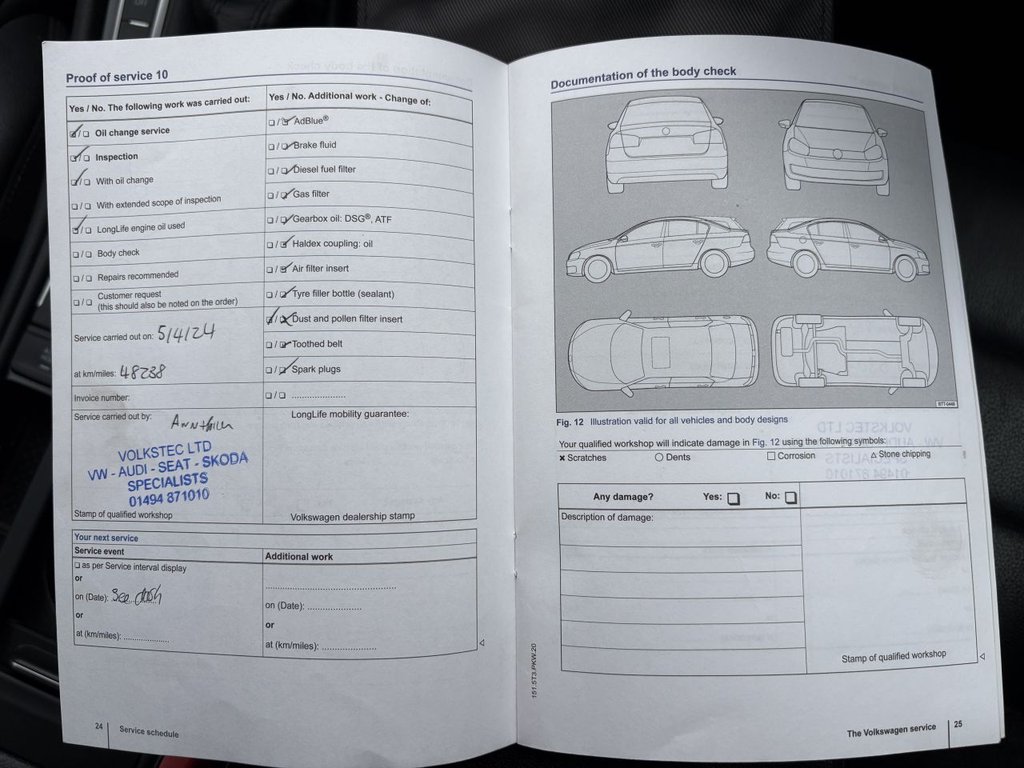 Proof of service 10
Yes / No. The following work was carried out:
☑/☐ Oil change service
☑/☐ Inspection
☑/☐ With oil change
☐/☐ With extended scope of inspection
☑/☐ LongLife engine oil used
☐/☐ Body check
☐/☐ Repairs recommended
☐/☐ Customer request
(this should also be noted on the order)
Service carried out on: 5/4/24
at km/miles: 48238
Invoice number:
Service carried out by:
VOLKSTEC LTD
VW - AUDI - SEAT - SKODA
SPECIALISTS
01494 871010
Stamp of qualified workshop
Yes / No. Additional work - Change of:
☐/☑ AdBlue®
☐/☑ Brake fluid
☐/☑ Diesel fuel filter
☐/☑ Gas filter
☐/☑ Gearbox oil: DSG®, ATF
☐/☑ Haldex coupling: oil
☐/☑ Air filter insert
☐/☑ Tyre filler bottle (sealant)
☑/☒ Dust and pollen filter insert
☐/☑ Toothed belt
☐/☑ Spark plugs
☐/☐ .....................
LongLife mobility guarantee:
Volkswagen dealership stamp
Your next service
Service event
☐ as per Service interval display
or
on (Date): See dash
or
at (km/miles): ..................
Additional work
..........................................
on (Date): .....................
or
at (km/miles): .....................
24
Service schedule
Documentation of the body check
Fig. 12 Illustration valid for all vehicles and body designs
Your qualified workshop will indicate damage in Fig. 12 using the following symbols:
× Scratches ○ Dents □ Corrosion △ Stone chipping
Any damage? Yes: ☐ No: ☐
Description of damage:
Stamp of qualified workshop
151.5T3.PKW.20
The Volkswagen service
25